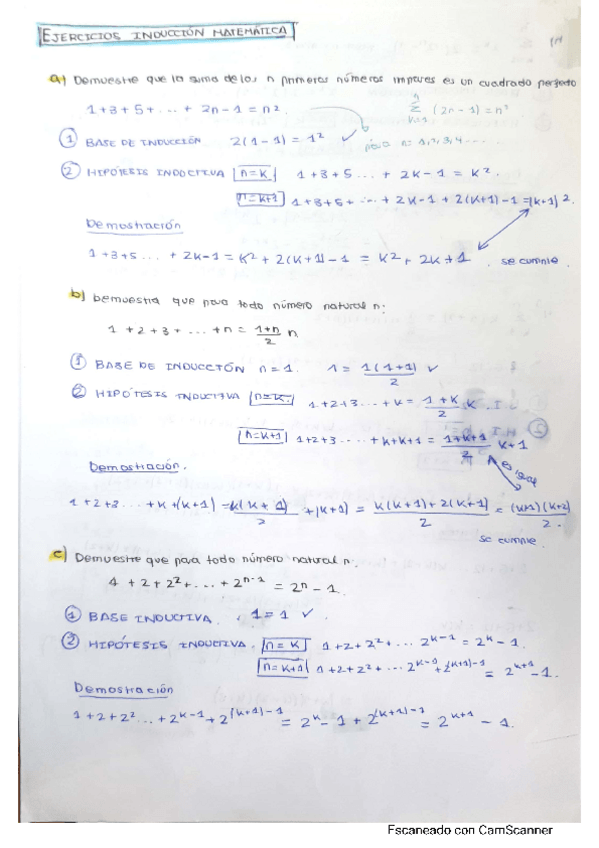 EJERCICIOS INDUCCIÓN MATEMÁTICA
a) Demuestre que la suma de los n primeros números impares es un cuadrado perfecto
1+3+5+ ... + 2n-1 = n²
n Σ k=1 (2n-1) = n²
① BASE DE INDUCCIÓN 2(1-1) = 1² ✓
para n = 1,2,3,4....
② HIPÓTESIS INDUCTIVA n=k 1+3+5 ... + 2k-1 = k².
n=k+1 1+3+5+ ... + 2k-1 + 2(k+1)-1 = (k+1)².
Demostración
1+3+5 ... + 2k-1 = k² + 2(k+1)-1 = k² + 2k+1 . se cumple.
b) Demuestra que para todo número natural n:
1+2+3+ ... +n = \frac{1+n}{2} n
① BASE DE INDUCCIÓN n=1. 1 = \frac{1(1+1)}{2} ✓
② HIPÓTESIS INDUCTIVA n=k. 1+2+3...+k = \frac{1+k}{2} k
n=k+1 1+2+3.....+k+k+1 = \frac{1+k+1}{2} k+1
Demostración. es igual
1+2+3 ... +k+(k+1) = \frac{k(k+1)}{2} + (k+1) = \frac{k(k+1)+2(k+1)}{2} = \frac{(k+1)(k+2)}{2}.
se cumple.
c) Demuestre que para todo número natural n:
1+2+2²+...+2ⁿ⁻¹ = 2ⁿ-1.
① BASE INDUCTIVA. 1=1 ✓
② HIPÓTESIS INDUCTIVA. n=k 1+2+2²+... 2ᵏ⁻¹ = 2ᵏ-1.
n=k+1 1+2+2²+... 2ᵏ⁻¹+2⁽ᵏ⁺¹⁾⁻¹ = 2ᵏ⁺¹-1.
Demostración
1+2+2²...+2ᵏ⁻¹+2⁽ᵏ⁺¹⁾⁻¹ = 2ᵏ-1+2⁽ᵏ⁺¹⁾⁻¹ = 2ᵏ⁺¹-1.
Escaneado con CamScanner